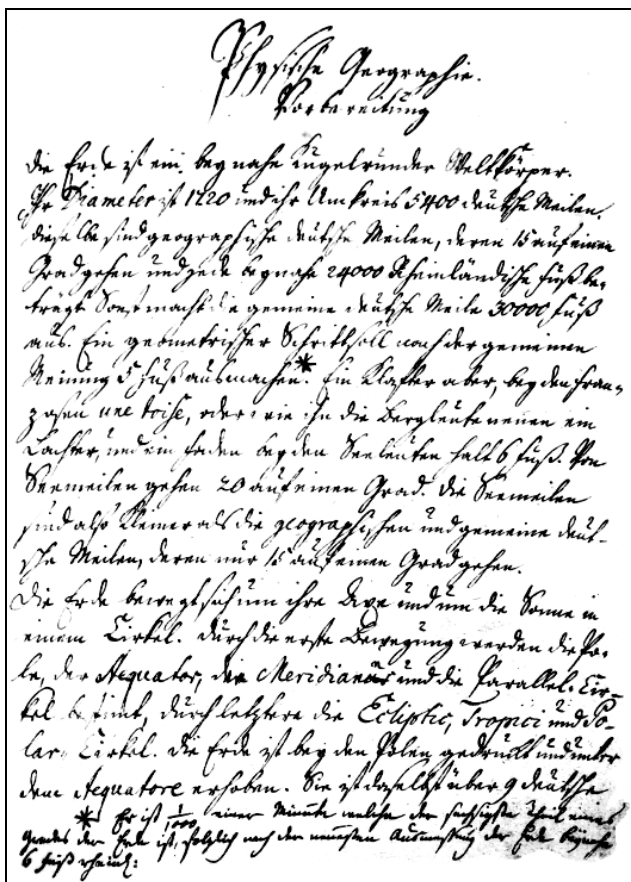 Physische Geographie.
Vorbereitung
Die Erde ist ein beynahe Kugelrunder Weltkörper.
Ihr Diameter ist 1720 und ihr Umkreis 5400 deutsche Meilen.
dieselbe sind geographische deutsche Meilen, deren 15 auf einen
Grad gehen und jede beynahe 24000 Rheinländische Fuß be-
trägt. Sonst macht die gemeine deutsche Meile 30000 Fuß
aus. Ein geometrischer Schritt soll nach der gemeinen
Meinung 5 Fuß ausmachen.* Ein Klafter aber, bey den Fran-
zosen une toise, oder wie ihn die Bergleute nennen ein
Lachter, und ein Faden bey den Seeleuten hält 6 Fuß. Von
Seemeilen gehen 20 auf einen Grad. Die Seemeilen
sind also kleiner als die geographischen und gemeine deut-
sche Meilen, deren nur 15 auf einen Grad gehen.
Die Erde bewegt sich um ihre Axe und um die Sonne in
einem Cirkel. Durch die erste Bewegung werden die Po-
le, der Aequator, die Meridianer und die Parallel-Cir-
kel bestimt, durch letztere die Ecliptic, Tropici und Po-
lar-Cirkel. Die Erde ist bey den Polen gedruckt und unter
dem Aequatore erhoben. Sie ist daselbst über 9 deutsche
* Er ist 1/1000 einer Minute welche der sechsigste Theil eines
Grades der Erde ist, folglich nach der neuesten Ausmessung der Erde beynahe
6 Fuß rheinl: